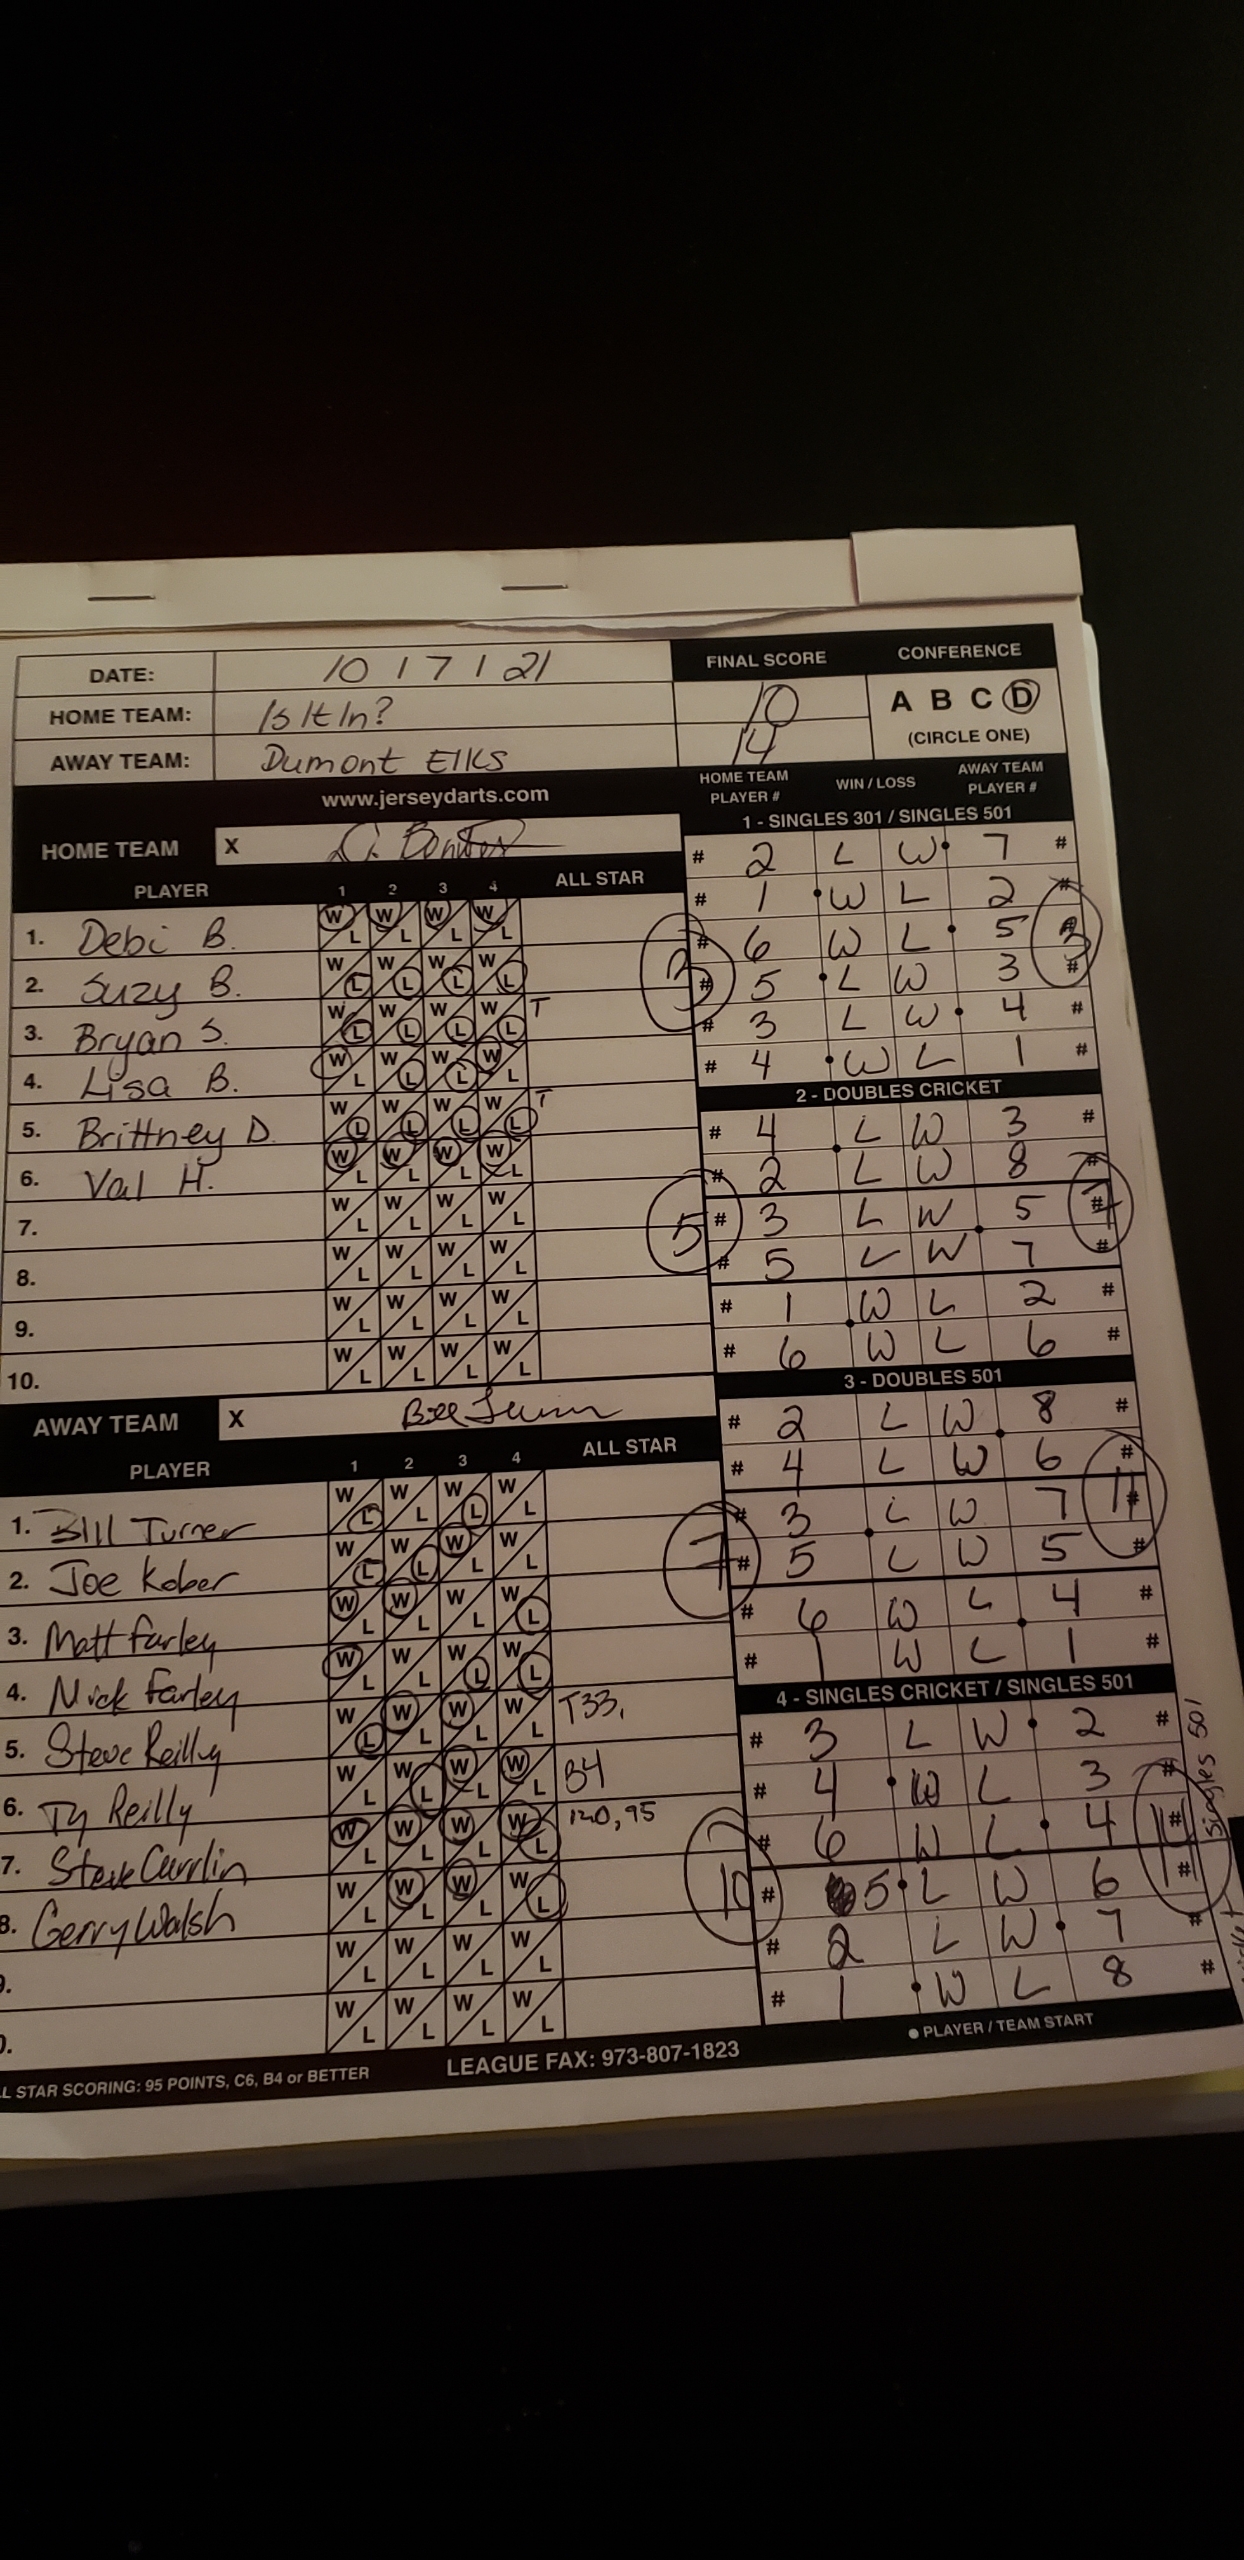 DATE: 10 1 7 1 21
HOME TEAM: Is It In?
AWAY TEAM: Dumont Elks
FINAL SCORE
10
14
CONFERENCE
A B C D
(CIRCLE ONE)
www.jerseydarts.com
HOME TEAM X
PLAYER 1 2 3 4 ALL STAR
1. Debi B. W L W L W L W L
2. Suzy B. W L W L W L W L
3. Bryan S. W L W L W L W L T
4. Lisa B. W L W L W L W L
5. Brittney D. W L W L W L W L T
6. Val H. W L W L W L W L
7. W L W L W L W L
8. W L W L W L W L
9. W L W L W L W L
10. W L W L W L W L
AWAY TEAM X
PLAYER 1 2 3 4 ALL STAR
1. Bill Turner W L W L W L W L
2. Joe Kober W L W L W L W L
3. Matt Farley W L W L W L W L
4. Nick Farley W L W L W L W L
5. Steve Reilly W L W L W L W L T33,
6. Ty Reilly W L W L W L W L B4
7. Steve W L W L W L W L 120, 95
8. Gerry Walsh W L W L W L W L
9. W L W L W L W L
0. W L W L W L W L
L STAR SCORING: 95 POINTS, C6, B4 or BETTER
LEAGUE FAX: 973-807-1823
HOME TEAM PLAYER # WIN / LOSS AWAY TEAM PLAYER #
1 - SINGLES 301 / SINGLES 501
# 2 L W 7 #
# 1 W L 2 #
# 6 W L 5 #
# 5 L W 3 #
# 3 L W 4 #
# 4 W L 1 #
3 3
2 - DOUBLES CRICKET
# 4 L W 3 #
# 2 L W 8 #
# 3 L W 5 #
# 5 L W 7 #
# 1 W L 2 #
# 6 W L 6 #
5 7
3 - DOUBLES 501
# 2 L W 8 #
# 4 L W 6 #
# 3 L W 7 #
# 5 L W 5 #
# 6 W L 4 #
# 1 W L 1 #
7 11
4 - SINGLES CRICKET / SINGLES 501
# 3 L W 2 #
# 4 W L 3 #
# 6 W L 4 #
# 5 L W 6 #
# 2 L W 7 #
# 1 W L 8 #
10 14
Singles 501
● PLAYER / TEAM START